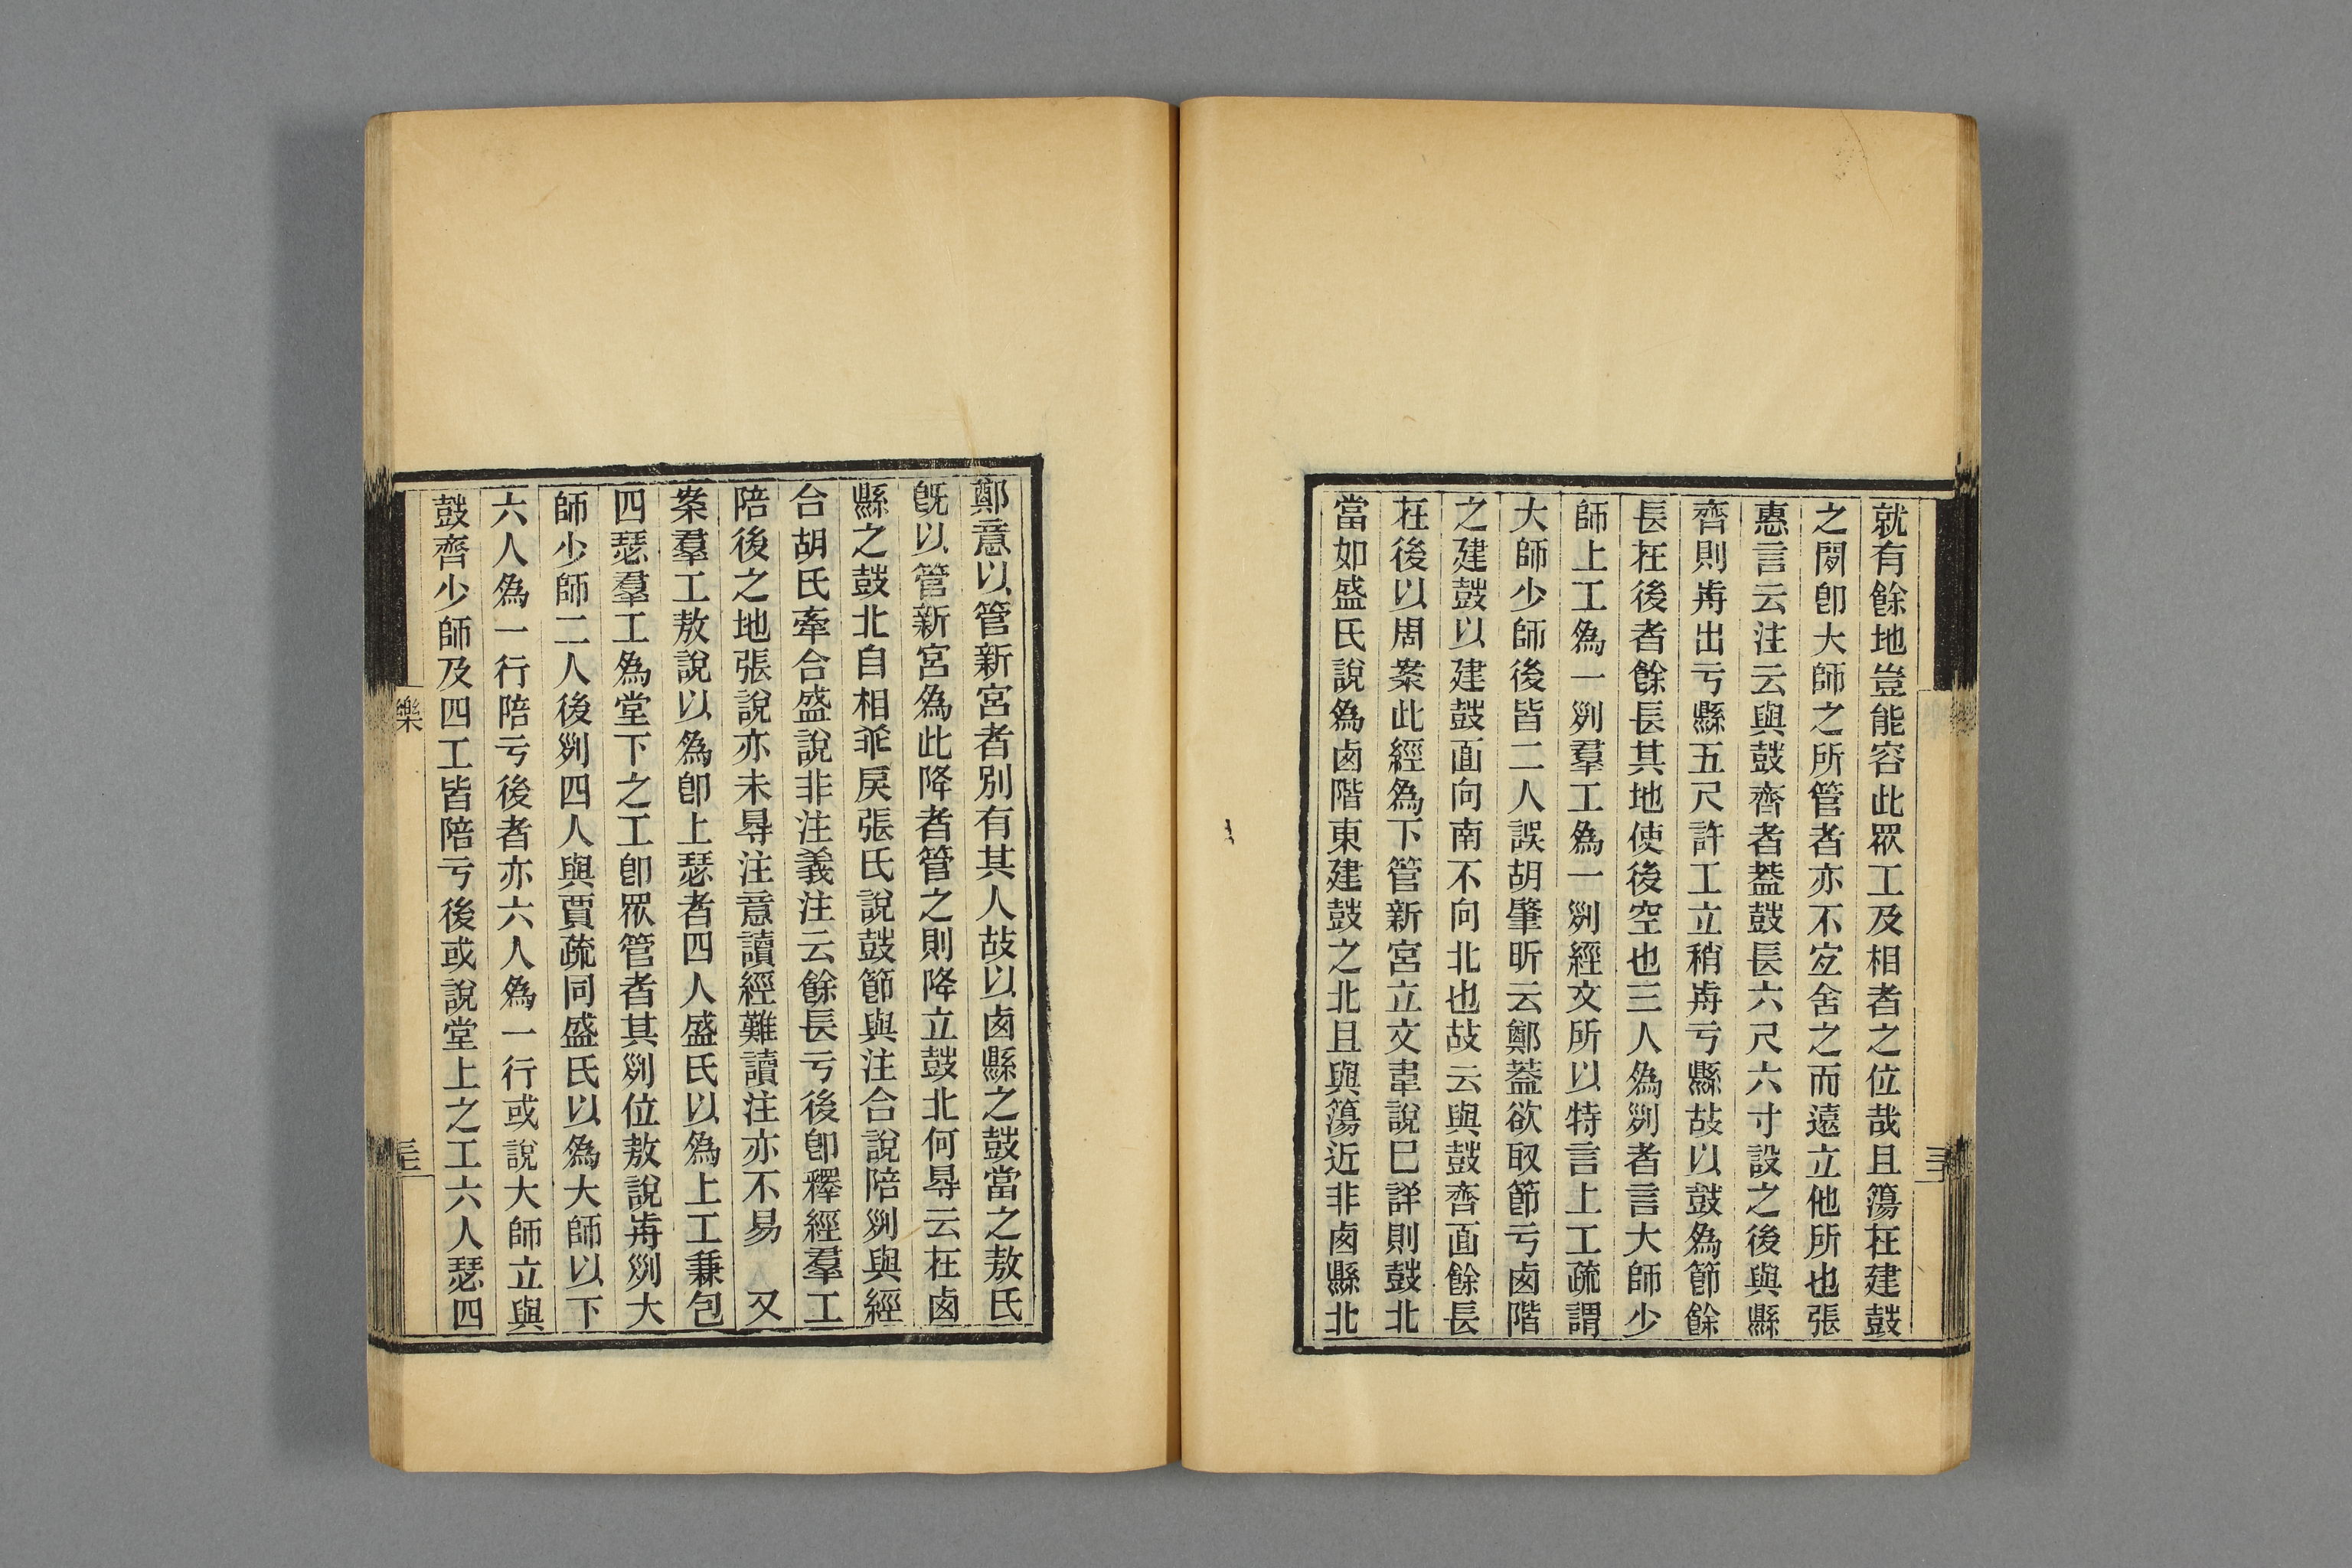 就有餘地豈能容此眾工及相者之位哉且簜在建鼓
之閒卽大師之所管者亦不宐舍之而遠立他所也張
惠言云注云與鼓齊者葢鼓長六尺六寸設之後與縣
齊則歬出亏縣五尺許工立稍歬亏縣故以鼓為節餘
長在後者餘長其地使後空也三人為列者言大師少
師上工為一列羣工為一列經文所以特言上工疏謂
大師少師後皆二人誤胡肇昕云鄭葢欲取節亏鹵階
之建鼓以建鼓面向南不向北也故云與鼓齊面餘長
在後以周案此經為下管新宮立文韋說巳詳則鼓北
當如盛氏說為鹵階東建鼓之北且與簜近非鹵縣北
鄭意以管新宮者別有其人故以鹵縣之鼓當之敖氏
旣以管新宮為此降者管之則降立鼓北何㝵云在鹵
縣之鼓北自相乖戾張氏說鼓節與注合說陪列與經
合胡氏牽合盛說非注義注云餘長亏後卽釋經羣工
陪後之地張說亦未㝵注意讀經難讀注亦不易　又
案羣工敖說以為卽上瑟者四人盛氏以為上工兼包
四瑟羣工為堂下之工卽眾管者其列位敖說歬列大
師少師二人後列四人與賈疏同盛氏以為大師以下
六人為一行陪亏後者亦六人為一行或說大師立與
鼓齊少師及四工皆陪亏後或說堂上之工六人瑟四
樂